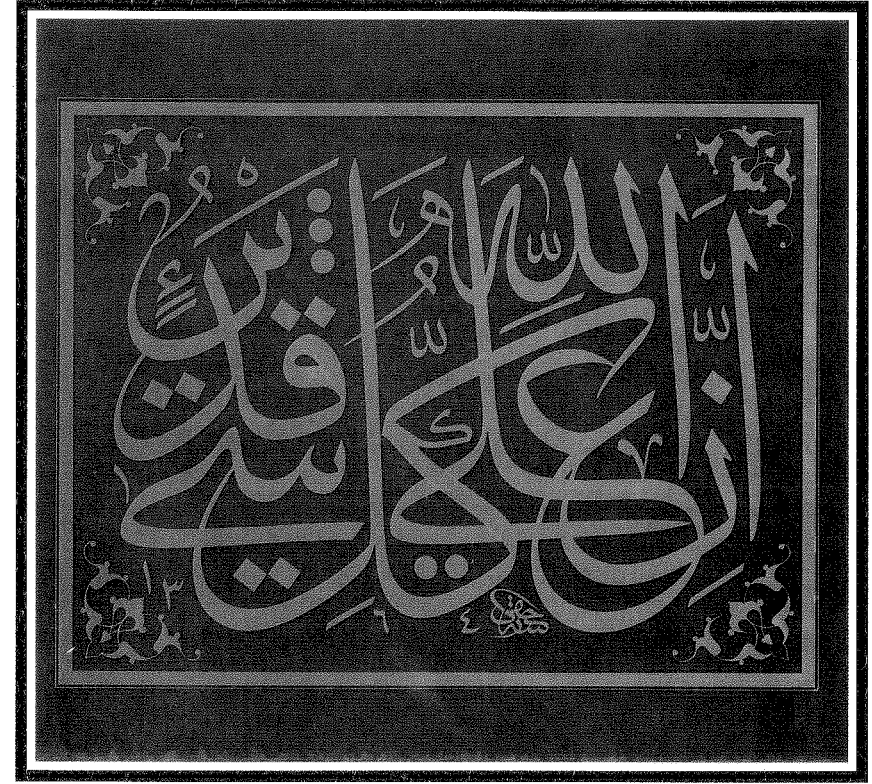 إِنَّ اللّٰهَ عَلَىٰ كُلِّ شَيْءٍ قَدِيرٌ
١٣٦٤